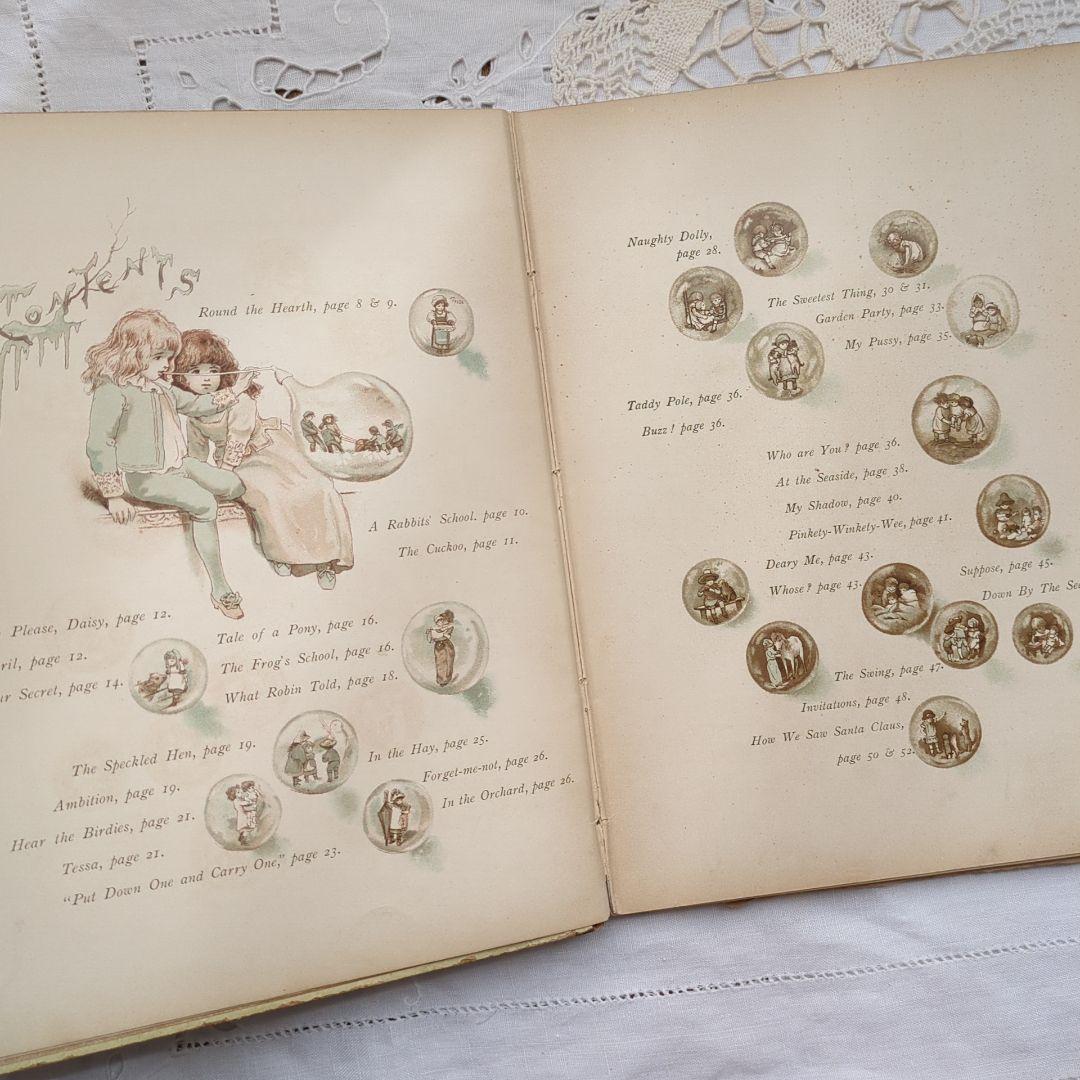 CONTENTS
Round the Hearth, page 8 & 9.
A Rabbits' School. page 10.
The Cuckoo, page 11.
Please, Daisy, page 12.
page 12.
Secret, page 14.
Tale of a Pony, page 16.
The Frog's School, page 16.
What Robin Told, page 18.
The Speckled Hen, page 19.
Ambition, page 19.
Hear the Birdies, page 21.
Tessa, page 21.
"Put Down One and Carry One," page 23.
In the Hay, page 25.
Forget-me-not, page 26.
In the Orchard, page 26.
Naughty Dolly,
page 28.
The Sweetest Thing, 30 & 31.
Garden Party, page 33.
My Pussy, page 35.
Taddy Pole, page 36.
Buzz! page 36.
Who are You? page 36.
At the Seaside, page 38.
My Shadow, page 40.
Pinkety-Winkety-Wee, page 41.
Deary Me, page 43.
Whose? page 43.
Suppose, page 45.
Down By The
The Swing, page 47.
Invitations, page 48.
How We Saw Santa Claus,
page 50 & 52.